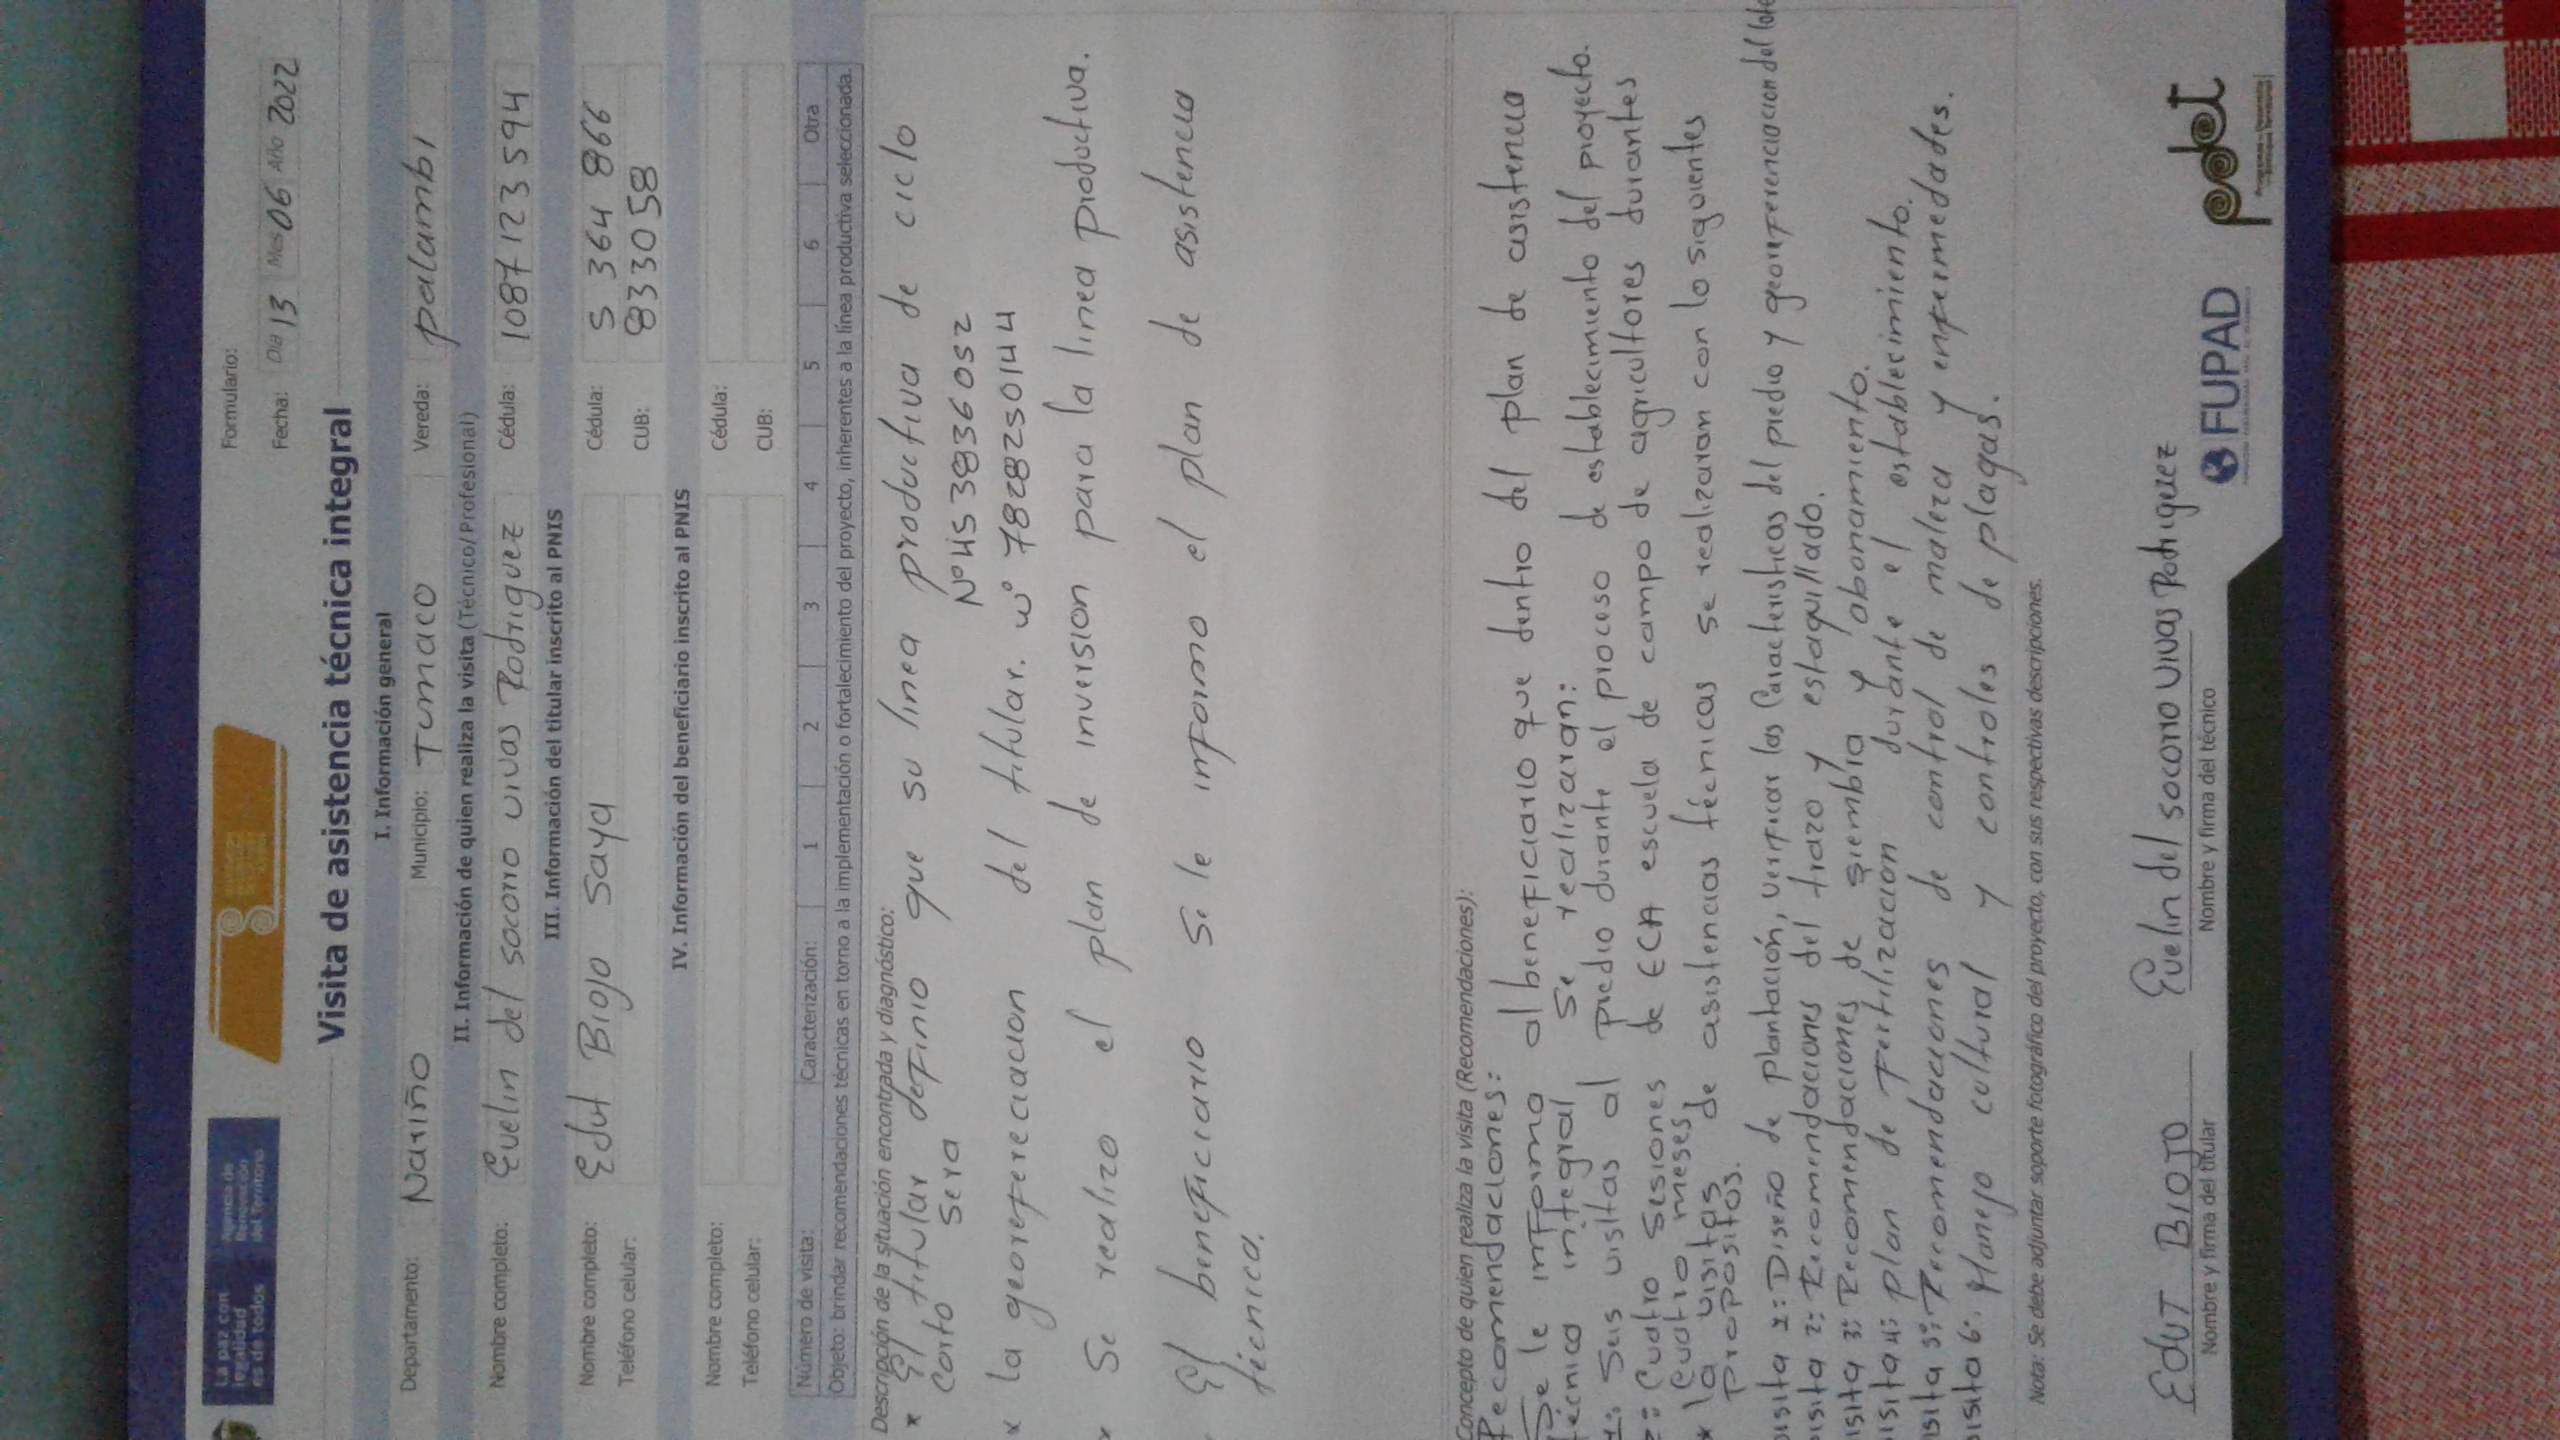 La paz con
legalidad
es de todos
Agencia de
Renovación
del Territorio
Formulario:
Fecha: Día 13 Mes 06 Año 2022
Visita de asistencia técnica integral
I. Información general
Departamento: Nariño Municipio: Tumaco Vereda: palambi
II. Información de quien realiza la visita (Técnico/Profesional)
Nombre completo: Evelin del socorro vivas Rodriguez Cédula: 1087123594
III. Información del titular inscrito al PNIS
Nombre completo: Edut Biojo Saya Cédula: 5 364 866
Teléfono celular: CUB: 833058
IV. Información del beneficiario inscrito al PNIS
Nombre completo: Cédula:
Teléfono celular: CUB:
Número de visita: Caracterización: 1 2 3 4 5 6 Otra
Objeto: brindar recomendaciones técnicas en torno a la implementación o fortalecimiento del proyecto, inherentes a la línea productiva seleccionada.
Descripción de la situación encontrada y diagnóstico:
* El titular definio que su linea productiva de ciclo
corto sera N°4S3836052
x la georeferecιacion del titular. w° 7828250144
x Se realizo el plan de inversion para la linea productiva.
El beneficiario se le informo el plan de asistencia
técnica.
Concepto de quien realiza la visita (Recomendaciones):
Recomendaciones:
Se le informa al beneficiario que dentro del plan de asistencia
técnica integral se realizaran:
1: Seis visitas al predio durante el proceso de establecimiento del proyecto.
2: Cuatro sesiones de ECA escuela de campo de agricultores durantes
cuatro meses
* la visitas de asistencias técnicas se realizaran con lo siguientes
propositos.
visita 1: Diseño de plantación, verificar las caracteristicas del predio y georeferenciacion del lote
visita 2: Recomendaciones del trazo y estaquillado.
visita 3: Recomendaciones de siembra y abonamiento.
visita 4: plan de fertilizacion durante el establecimiento.
visita 5: Recomendaciones de control de maleza y enfermedades.
visita 6: Manejo cultural y controles de plagas.
Nota: Se debe adjuntar soporte fotográfico del proyecto, con sus respectivas descripciones.
EDUT BIOJO
Nombre y firma del titular
Evelin del socorro vivas Rodriguez
Nombre y firma del técnico
FUPAD
pdet